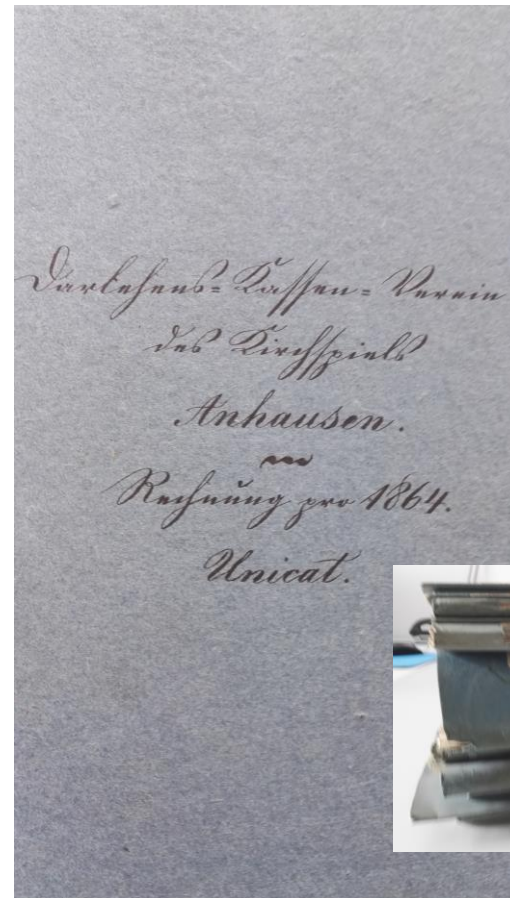 Darlehens-Kassen-Verein
des Kirchspiels
Anhausen.
Rechnung pro 1864.
Unicat.